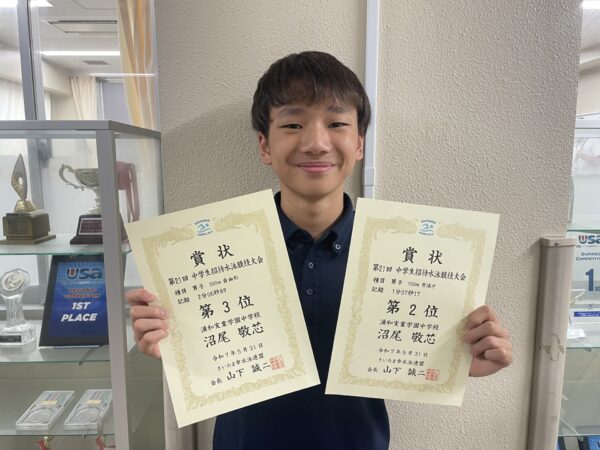 賞状
第21回 中学生招待水泳競技大会
種目 男子 200m 自由形
記録 2分06秒49
第3位
浦和実業学園中学校
沼尾 敬芯
令和7年5月31日
さいたま市水泳連盟
会長 山下 誠二
賞状
第21回 中学生招待水泳競技大会
種目 男子 100m 背泳ぎ
記録 1分07秒17
第2位
浦和実業学園中学校
沼尾 敬芯
令和7年5月31日
さいたま市水泳連盟
会長 山下 誠二
USA
REGIONAL
COMPETITION
1ST
PLACE
USA
USA